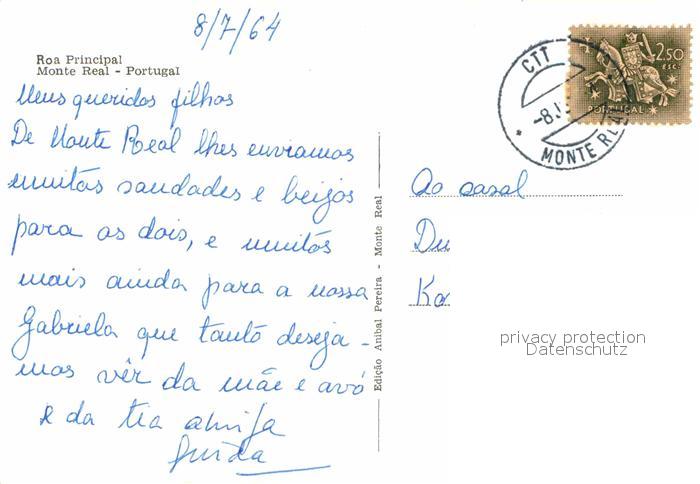 8/7/64
Roa Principal
Monte Real - Portugal
Meus queridos filhos
De Monte Real lhes enviamos
muitas saudades e beijos
para os dois, e muitos
mais ainda para a nossa
Gabriela que tanto deseja-
mos vêr da mãe e avó
e da tia amiga
Guida
Edição Anibal Pereira - Monte Real
CTT
-8.
MONTE REAL
2$50
ESC.
PORTUGAL
Ao casal
Du
Ka
privacy protection
Datenschutz